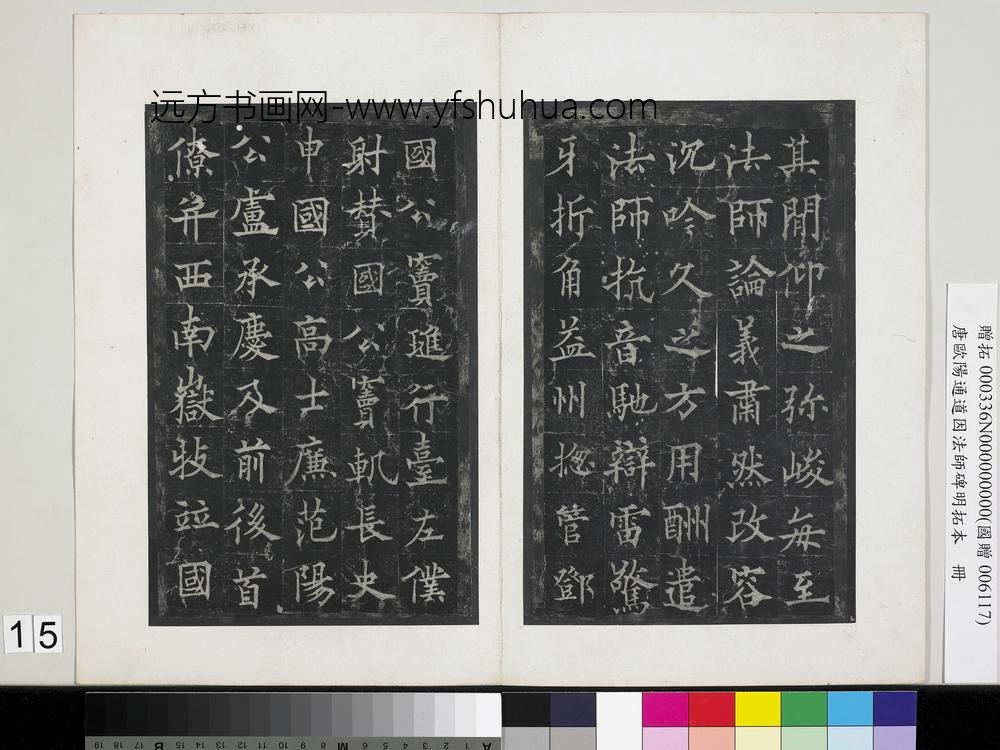 远方书画网-www.yfshuhua.com
其閒仰之弥峻每至
法師論義肅然改容
沉吟久之方用酬遣
法師抗音馳辯雷驚
牙折角益州揔管鄧
國公竇璡行臺左僕
射贊國公竇軌長史
申國公高士廉范陽
公盧承慶及前後首
僚并西南嶽牧並國
贈拓 000336N000000000(國贈 006117)
唐歐陽通道因法師碑明拓本 冊
15
19 18 17 16 15 14 13 12 11 10 B 8 7 6 5 4 M 3 2 1 A